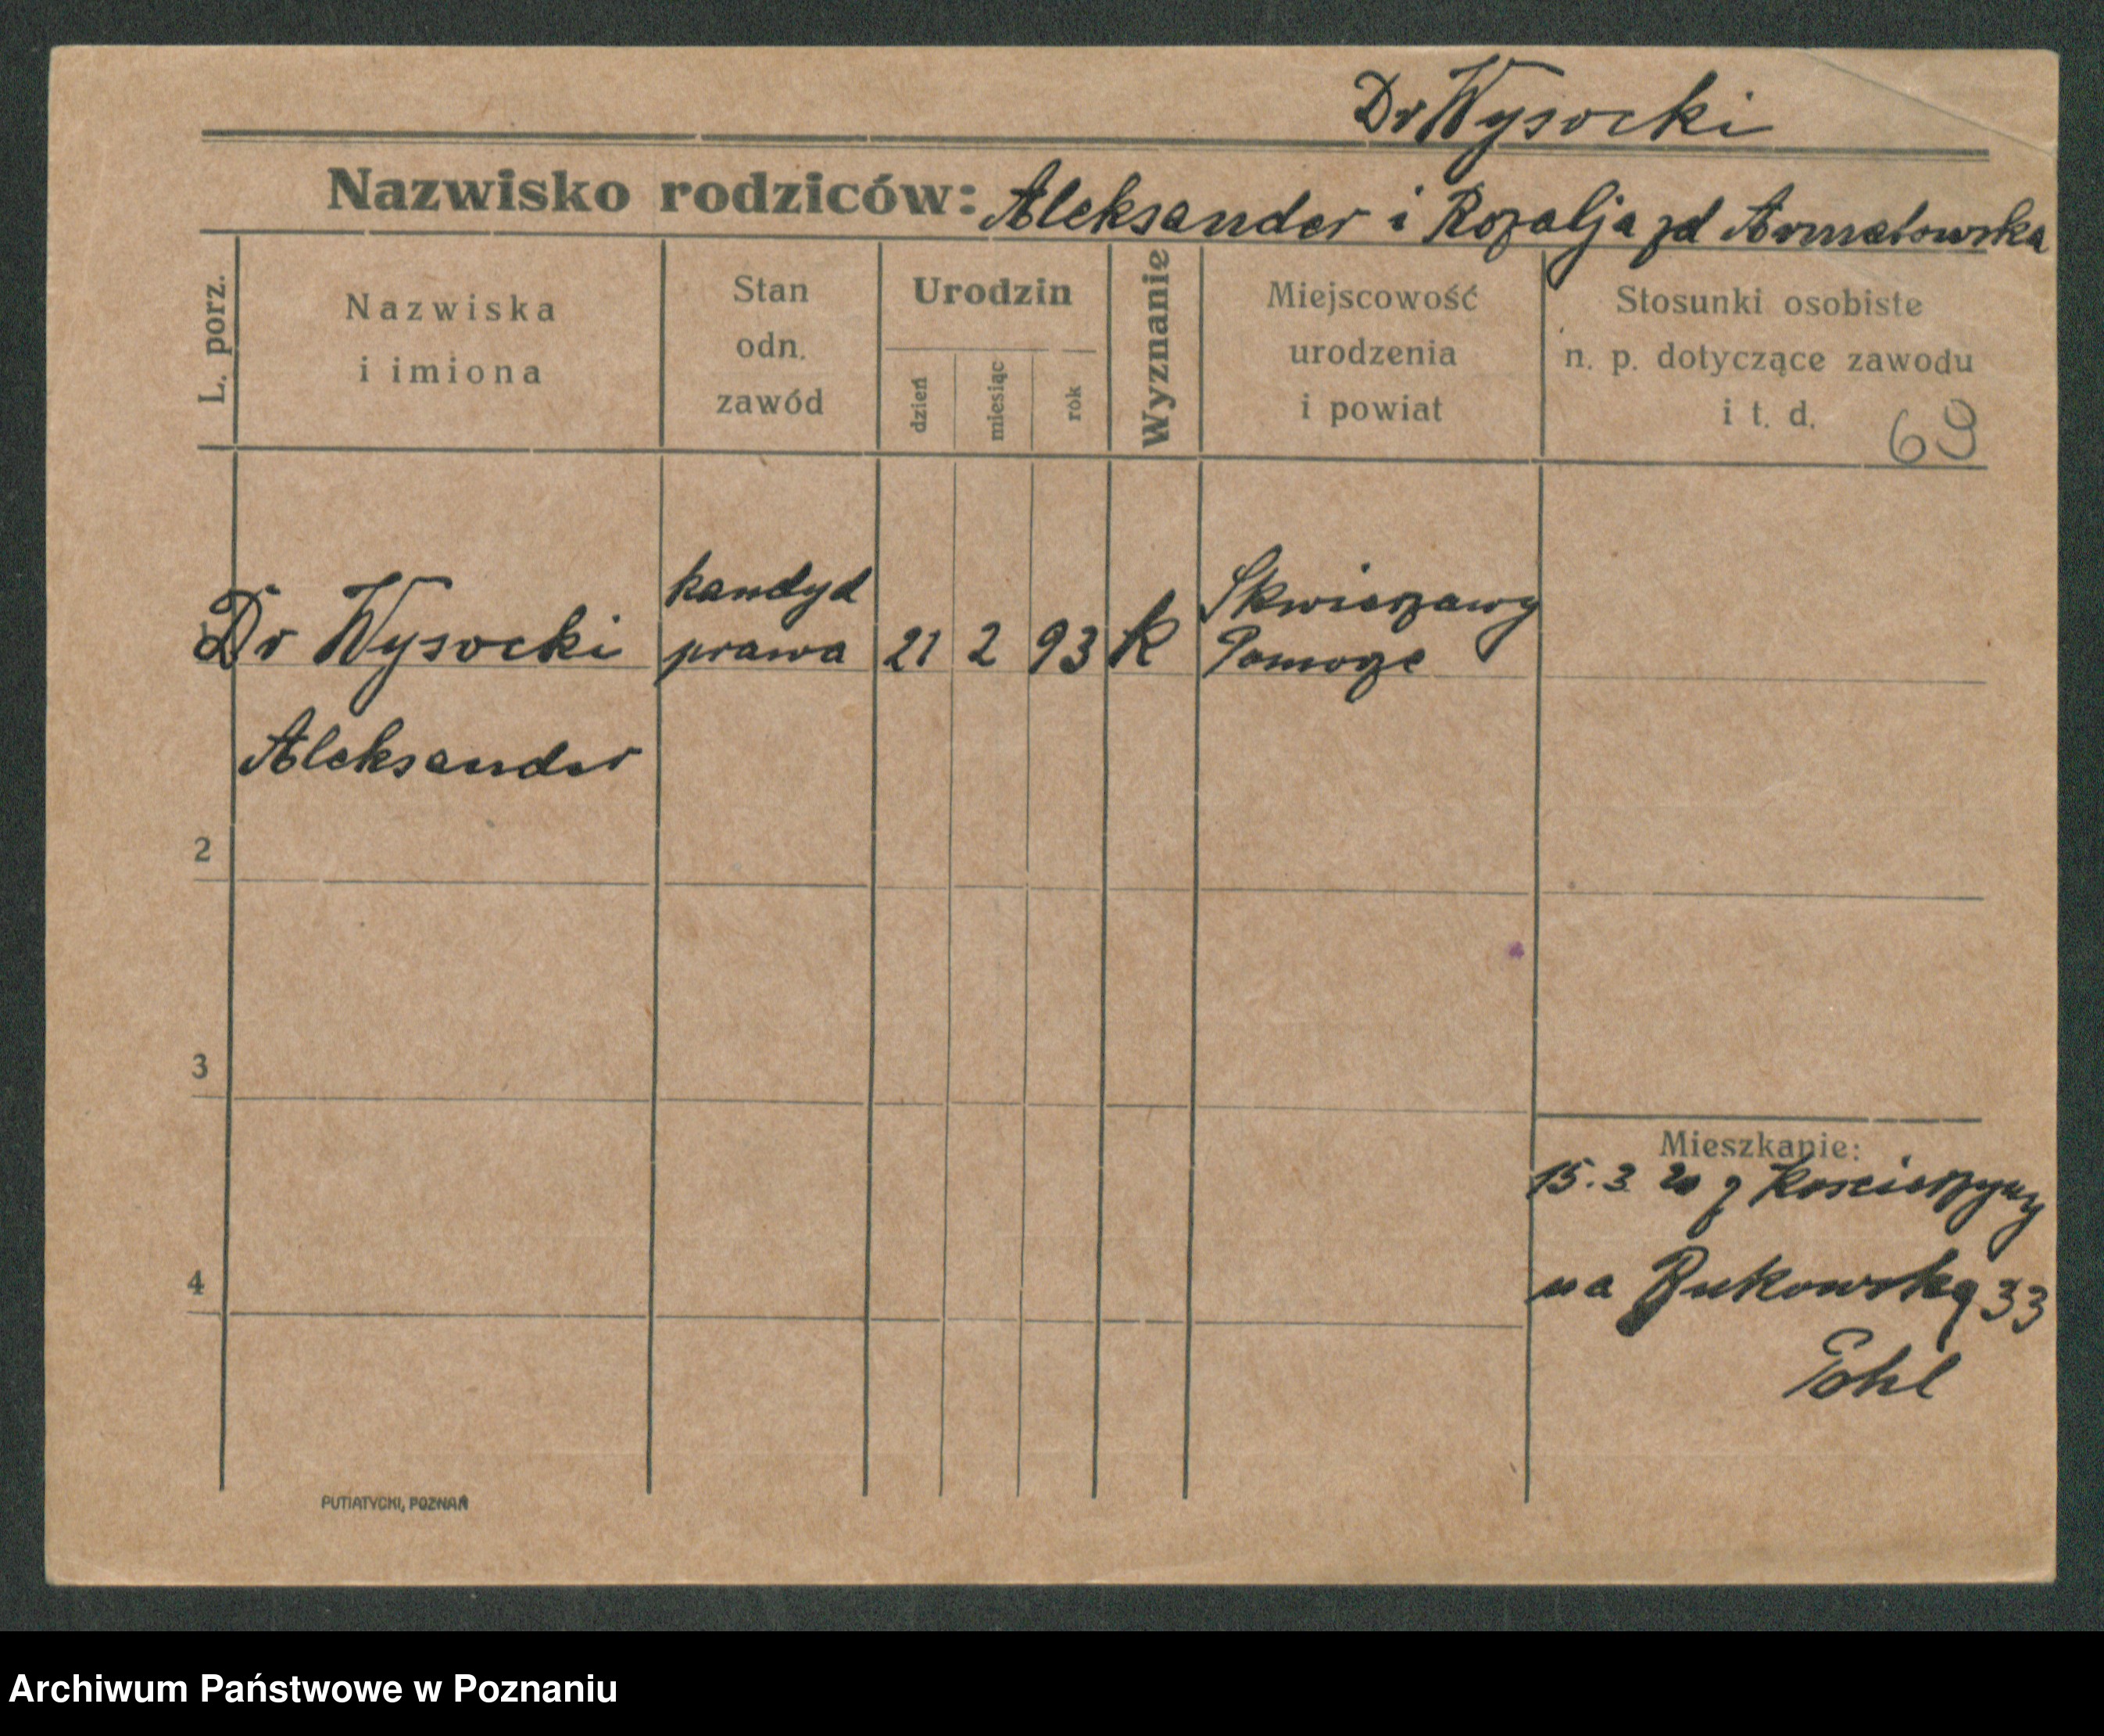 Dr Wysocki
Nazwisko rodziców: Aleksander i Rozalja zd Armatowska
L. porz.
Nazwiska
i imiona
Stan
odn.
zawód
Urodzin
dzień
miesiąc
rok
Wyznanie
Miejscowość
urodzenia
i powiat
Stosunki osobiste
n. p. dotyczące zawodu
i t. d.
69
Dr Wysocki
Aleksander
kandyd
prawa
21 2 93 k
Skwierzawy
Pomorze
2
3
4
Mieszkanie:
15.3 20 z Kościerzyny
na Bukowską 33
Pohl
PUTIATYCKI, POZNAŃ
Archiwum Państwowe w Poznaniu